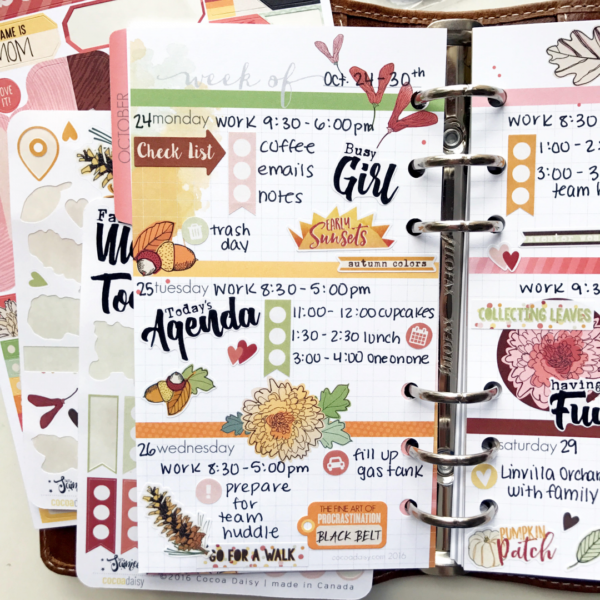 AME IS
MOM
OVE IT!
OCTOBER
week of
Oct. 24-30th
24 monday WORK 9:30-6:00pm
Check List
coffee
emails
notes
Busy
Girl
trash
day
EARLY
Sunsets
autumn colors
25 tuesday WORK 8:30-5:00pm
Today's
Agenda
11:00-12:00 cupcakes
1:30-2:30 lunch
3:00-4:00 one on one
26 wednesday
WORK 8:30-5:00pm
fill up
gas tank
prepare
for
team
huddle
THE FINE ART OF
PROCRASTINATION
BLACK BELT
GO FOR A WALK
WORK 8:30
1:00-2
3:00-3
team h
WORK 9:3
COLLECTING LEAVES
having
Fu
saturday 29
Linvilla Orchar
with family
PUMPKIN
Patch
Fa
M
To
cocoa
cocoadaisy
©2016 Cocoa Daisy | made in Canada